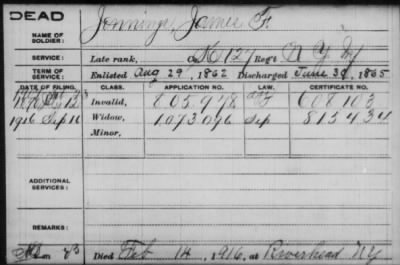 DEAD
NAME OF SOLDIER: Jennings, James F.
SERVICE: Late rank, K 127 Reg't N Y Inf
TERM OF SERVICE: Enlisted Aug 29, 1862 Discharged June 30, 1865
DATE OF FILING. CLASS. APPLICATION NO. LAW. CERTIFICATE NO.
Invalid, 805,978 608,103
1916 Sep 16 Widow, 1,073,096 Sep 815434
Minor,
ADDITIONAL SERVICES:
REMARKS:
Died Feb 14, 1916, at Riverhead NY